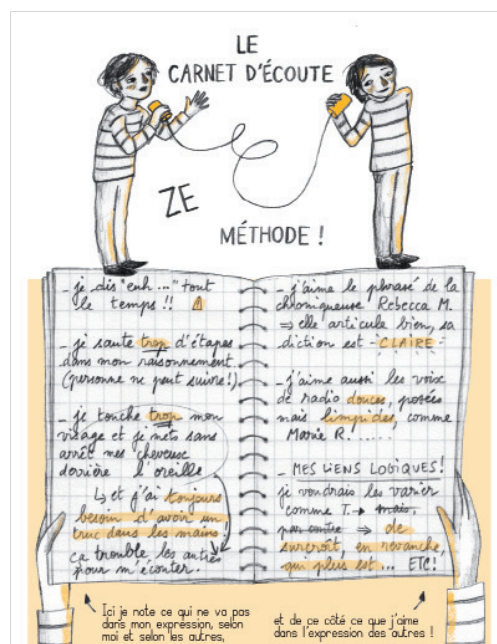 LE
CARNET D'ÉCOUTE
ZE
MÉTHODE !
_ je dis "euh..." tout
le temps !! ⚠
_ je saute trop d'étapes
dans mon raisonnement
(personne ne peut suivre!)
_ je touche trop mon
visage et je mets sans
arrêt mes cheveux
derrière l'oreille
↳ et j'ai toujours
besoin d'avoir un
truc dans les mains!
ça trouble les autres
pour m'écouter.
_ j'aime le phrasé de la
chroniqueuse Rebecca M.
⇒ elle articule bien, sa
diction est - CLAIRE -
_ j'aime aussi les voix
de radio douces, posées
mais limpides, comme
Marie R.!.....
_ MES LIENS LOGIQUES!
je voudrais les varier
comme T. → mais,
par contre ⇒ de
surcroît, en revanche,
qui plus est... ETC!
Ici je note ce qui ne va pas
dans mon expression, selon
moi et selon les autres,
et de ce côté ce que j'aime
dans l'expression des autres !